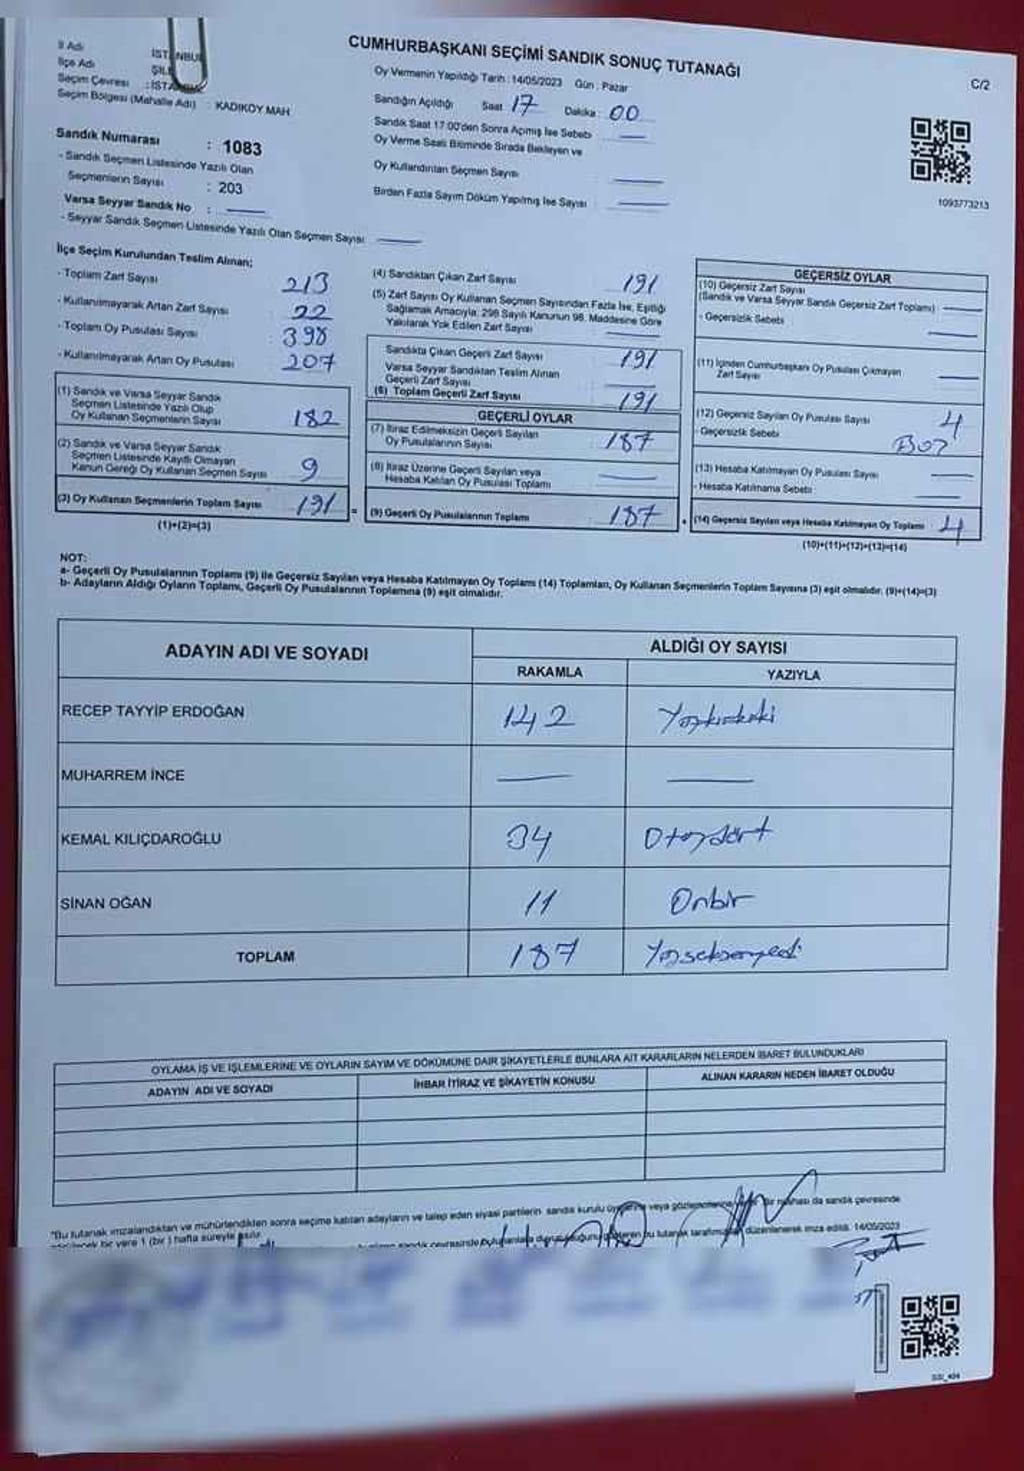 CUMHURBAŞKANI SEÇİMİ SANDIK SONUÇ TUTANAĞI
C/2
İl Adı İSTANBUL
İlçe Adı ŞİLE
Seçim Çevresi : İSTANBUL
Seçim Bölgesi (Mahalle Adı) : KADIKÖY MAH.
Oy Vermenin Yapıldığı Tarih : 14/05/2023 Gün : Pazar
Sandığın Açıldığı Saat 17 Dakika : 00
Sandık Saat 17:00'den Sonra Açımış İse Sebebi
Oy Verme Saati Bitiminde Sırada Bekleyen ve
Oy Kullandırılan Seçmen Sayısı
Birden Fazla Sayım Döküm Yapılmış İse Sayısı
1093773213
Sandık Numarası : 1083
- Sandık Seçmen Listesinde Yazılı Olan
Seçmenlerin Sayısı : 203
Varsa Seyyar Sandık No :
- Seyyar Sandık Seçmen Listesinde Yazılı Olan Seçmen Sayısı
İlçe Seçim Kurulundan Teslim Alınan;
- Toplam Zarf Sayısı : 213
- Kullanılmayarak Artan Zarf Sayısı : 22
- Toplam Oy Pusulası Sayısı : 398
- Kullanılmayarak Artan Oy Pusulası : 207
(1) Sandık ve Varsa Seyyar Sandık
Seçmen Listesinde Yazılı Olup
Oy Kullanan Seçmenlerin Sayısı 182
(2) Sandık ve Varsa Seyyar Sandık
Seçmen Listesinde Kayıtlı Olmayan
Kanun Gereği Oy Kullanan Seçmen Sayısı 9
(3) Oy Kullanan Seçmenlerin Toplam Sayısı 191 =
(1)+(2)=(3)
(4) Sandıktan Çıkan Zarf Sayısı 191
(5) Zarf Sayısı Oy Kullanan Seçmen Sayısından Fazla İse, Eşitliği
Sağlamak Amacıyla; 298 Sayılı Kanunun 98. Maddesine Göre
Yakılarak Yok Edilen Zarf Sayısı
Sandıkta Çıkan Geçerli Zarf Sayısı 191
Varsa Seyyar Sandıktan Teslim Alınan
Geçerli Zarf Sayısı
(6) Toplam Geçerli Zarf Sayısı 191
GEÇERLİ OYLAR
(7) İtiraz Edilmeksizin Geçerli Sayılan
Oy Pusulalarının Sayısı 187
(8) İtiraz Üzerine Geçerli Sayılan veya
Hesaba Katılan Oy Pusulası Toplamı
(9) Geçerli Oy Pusulalarının Toplamı 187
GEÇERSİZ OYLAR
(10) Geçersiz Zarf Sayısı
(Sandık ve Varsa Seyyar Sandık Geçersiz Zarf Toplamı)
- Geçersizlik Sebebi
(11) İçinden Cumhurbaşkanı Oy Pusulası Çıkmayan
Zarf Sayısı
(12) Geçersiz Sayılan Oy Pusulası Sayısı 4
- Geçersizlik Sebebi
(13) Hesaba Katılmayan Oy Pusulası Sayısı
- Hesaba Katılmama Sebebi
(14) Geçersiz Sayılan veya Hesaba Katılmayan Oy Toplamı 4
(10)+(11)+(12)+(13)=(14)
NOT:
a- Geçerli Oy Pusulalarının Toplamı (9) ile Geçersiz Sayılan veya Hesaba Katılmayan Oy Toplamı (14) Toplamları, Oy Kullanan Seçmenlerin Toplam Sayısına (3) eşit olmalıdır. (9)+(14)=(3)
b- Adayların Aldığı Oyların Toplamı, Geçerli Oy Pusulalarının Toplamına (9) eşit olmalıdır.
ADAYIN ADI VE SOYADI
ALDIĞI OY SAYISI
RAKAMLA
YAZIYLA
RECEP TAYYİP ERDOĞAN 142 Yüzkırkiki
MUHARREM İNCE
KEMAL KILIÇDAROĞLU 34 Otuzdört
SİNAN OĞAN 11 Onbir
TOPLAM 187 Yüzseksenyedi
OYLAMA İŞ VE İŞLEMLERİNE VE OYLARIN SAYIM VE DÖKÜMÜNE DAİR ŞİKAYETLERLE BUNLARA AİT KARARLARIN NELERDEN İBARET BULUNDUKLARI
ADAYIN ADI VE SOYADI
İHBAR İTİRAZ VE ŞİKAYETİN KONUSU
ALINAN KARARIN NEDEN İBARET OLDUĞU
"Bu tutanak imzalandıktan ve mühürlendikten sonra seçime katılan adayların ve talep eden siyasi partilerin sandık kurulu üyelerine veya gözlemcilerine Bir nüshası da sandık çevresinde
bir yere 1 (bir) hafta süreyle asılır. bu tutanak tarafımızdan düzenlenerek imza edildi. 14/05/2023